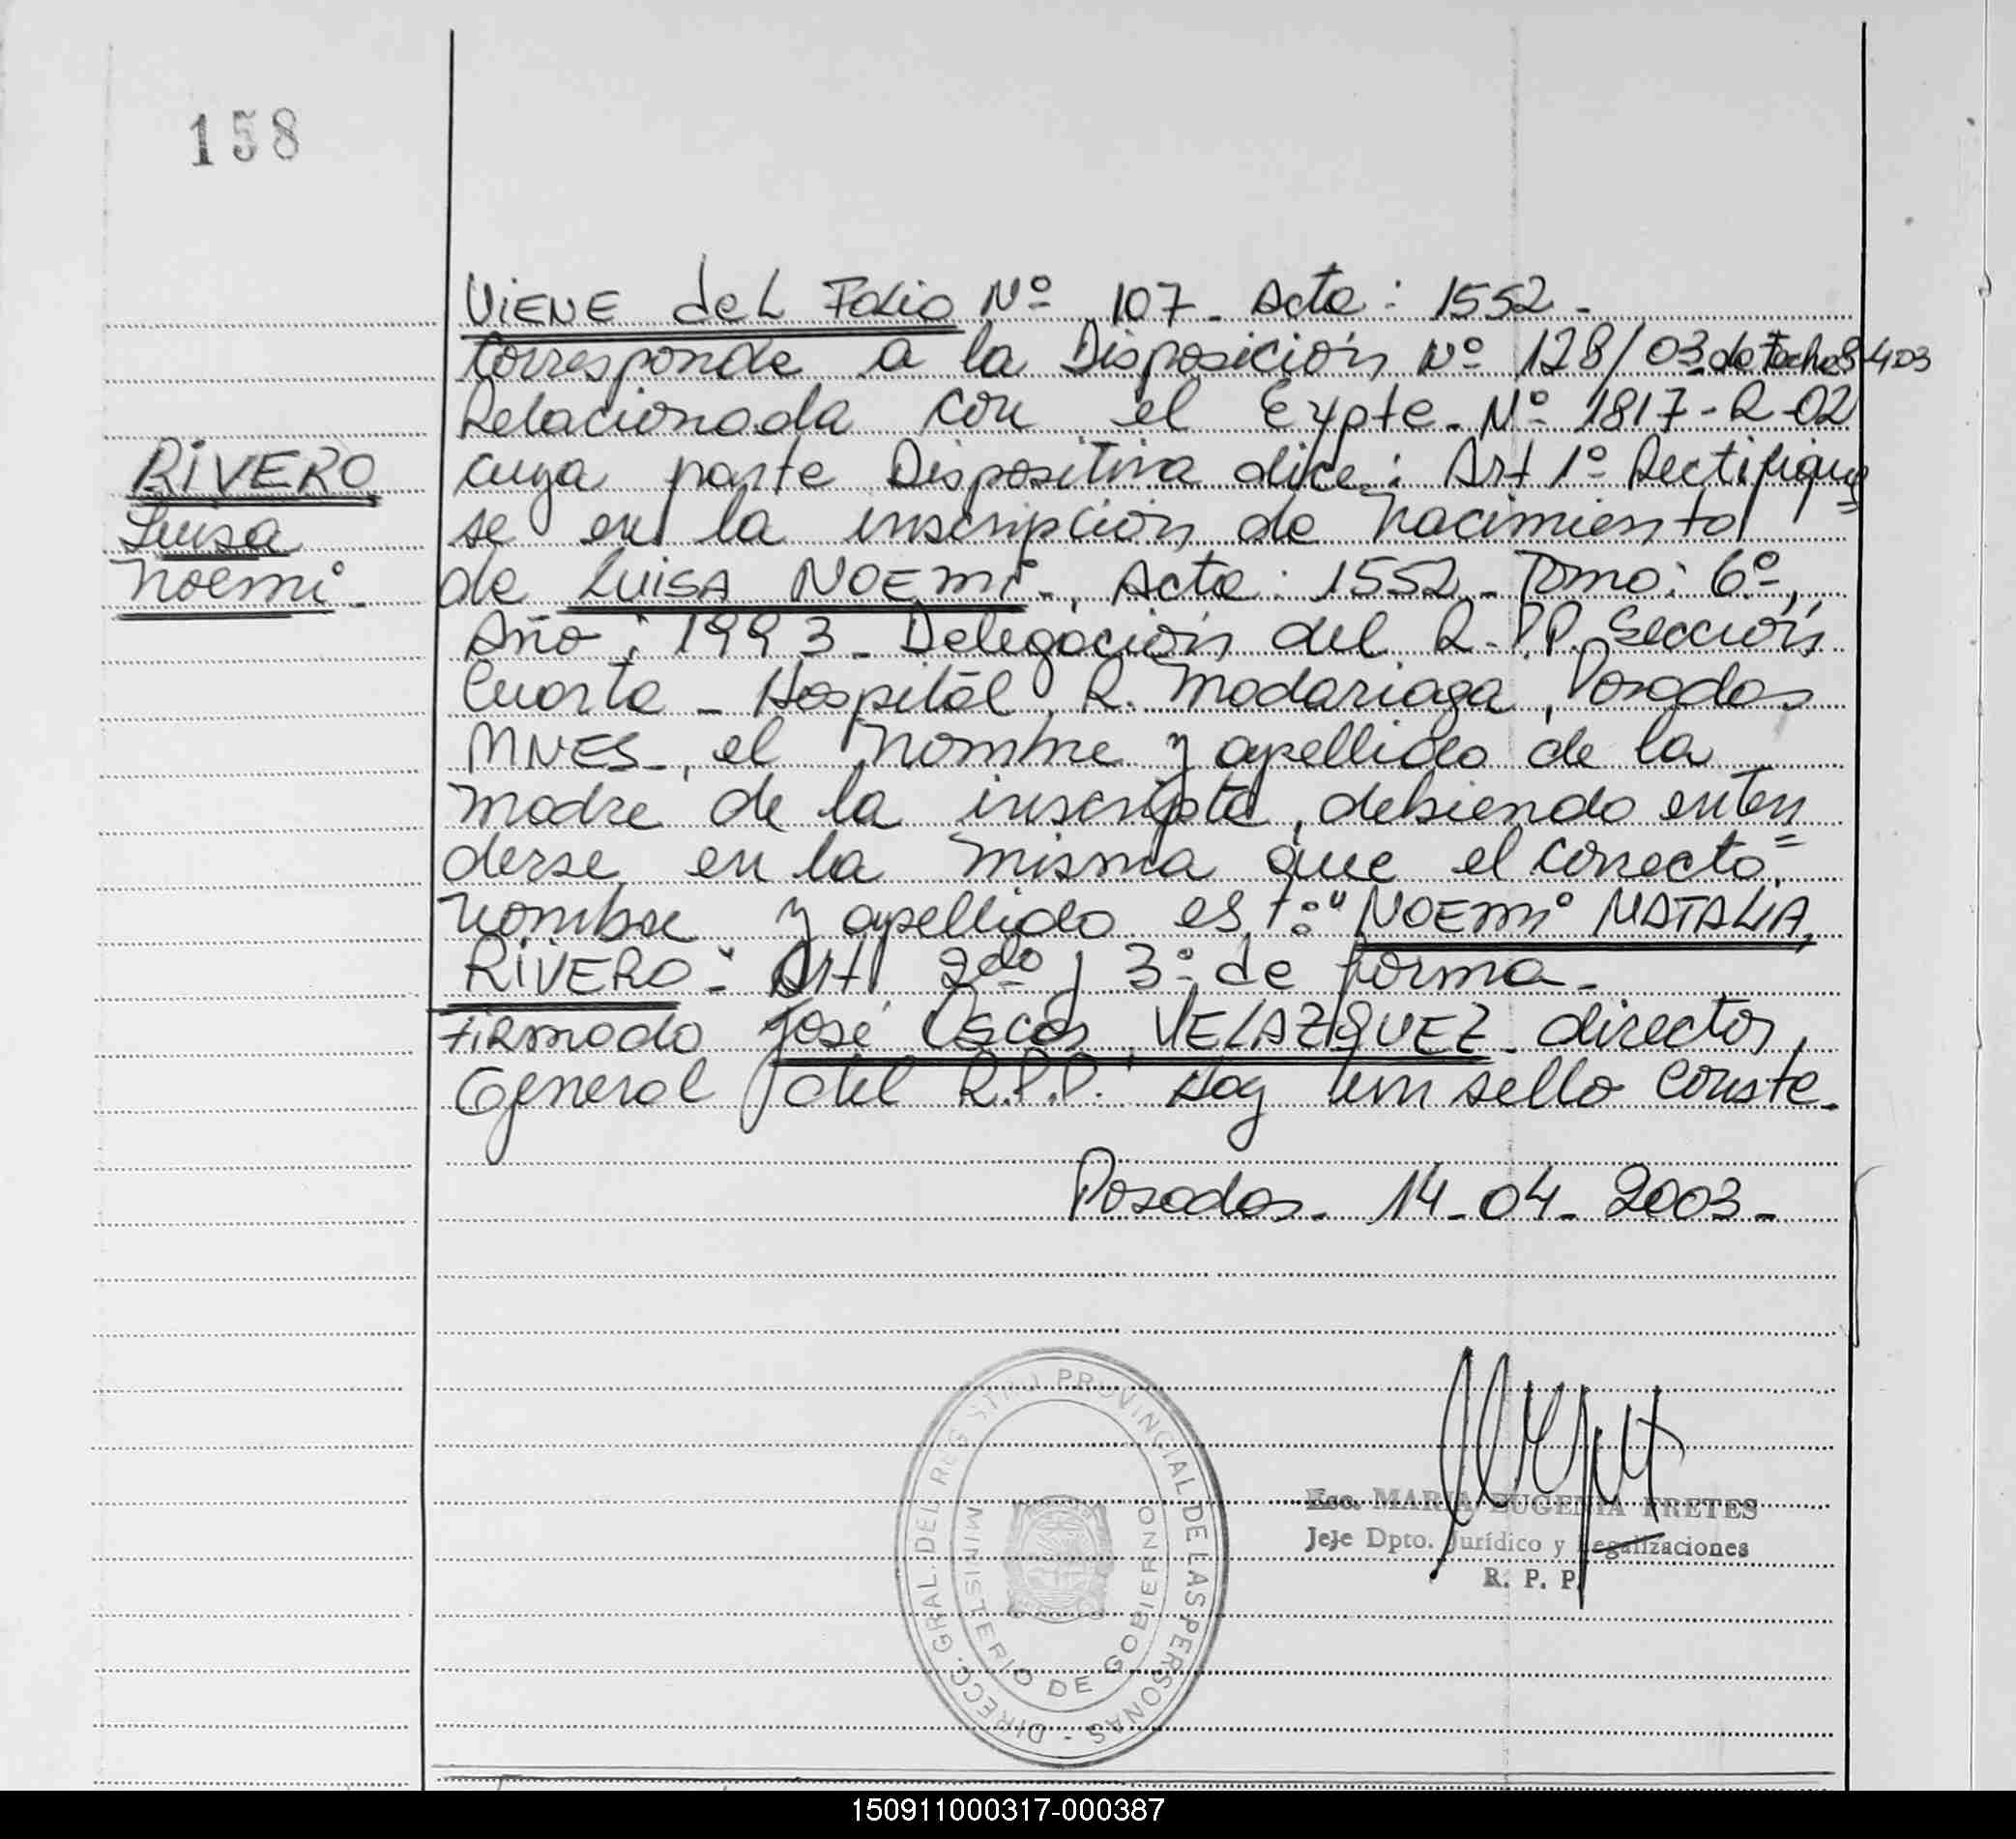 158
VIENE del Folio Nº 107_ Acta: 1552_
Corresponde a la Disposición Nº 128/03 de Fecha 8-4-03
Relacionada con el Expte. Nº 1817-R-02
RIVERO
Luisa
Noemi_
cuya parte Dispositiva dice: Art 1º Rectifique
se en la inscripción de nacimiento
de LUISA NOEMI_, Acta: 1552_ Tomo: 6º_,
Año: 1993_ Delegación del R.P.P. Sección
Cuarta _ Hospital R. Madariaga, Posadas
MNES_, el nombre y apellido de la
madre de la inscripta, debiendo enten=
derse en la misma que el correcto
nombre y apellido es: "NOEMI NATALIA
RIVERO" Art 2do y 3º de forma_
Firmado José Oscar VELAZQUEZ_ director
General del R.P.P. Hay un sello Conste_
Posadas_ 14_04_2003_
DIRECC. GRAL. DEL REGISTRO PROVINCIAL DE LAS PERSONAS -
MINISTERIO DE GOBIERNO
Esc. MARIA EUGENIA FRETES
Jefe Dpto. Jurídico y Legalizaciones
R. P. P.
150911000317-000387